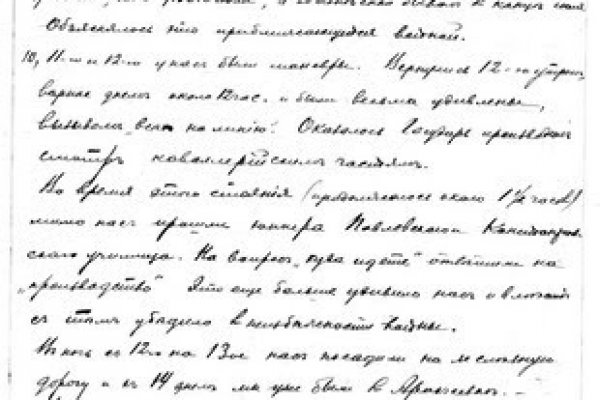 Объяснялось это приближающейся войной.
10, 11-го и 12-го у нас были маневры. Вернулись 12-го утром,
вернее днем около 12 час. и были весьма удивлены,
вызовом „всех на линию". Оказалось Государь производил
смотр кавалерийским частям.
Во время этого стояния (продолжалось около 1½ часов)
мимо нас прошли юнкера Павловского
училища. На вопрос „куда идете" ответили на
„производство" Это еще больше удивило нас и вместе
с тем убедило в неизбежности войны.
В ночь с 12-го на 13-ое нас посадили на железную
дорогу и 14 днем мы уже были в